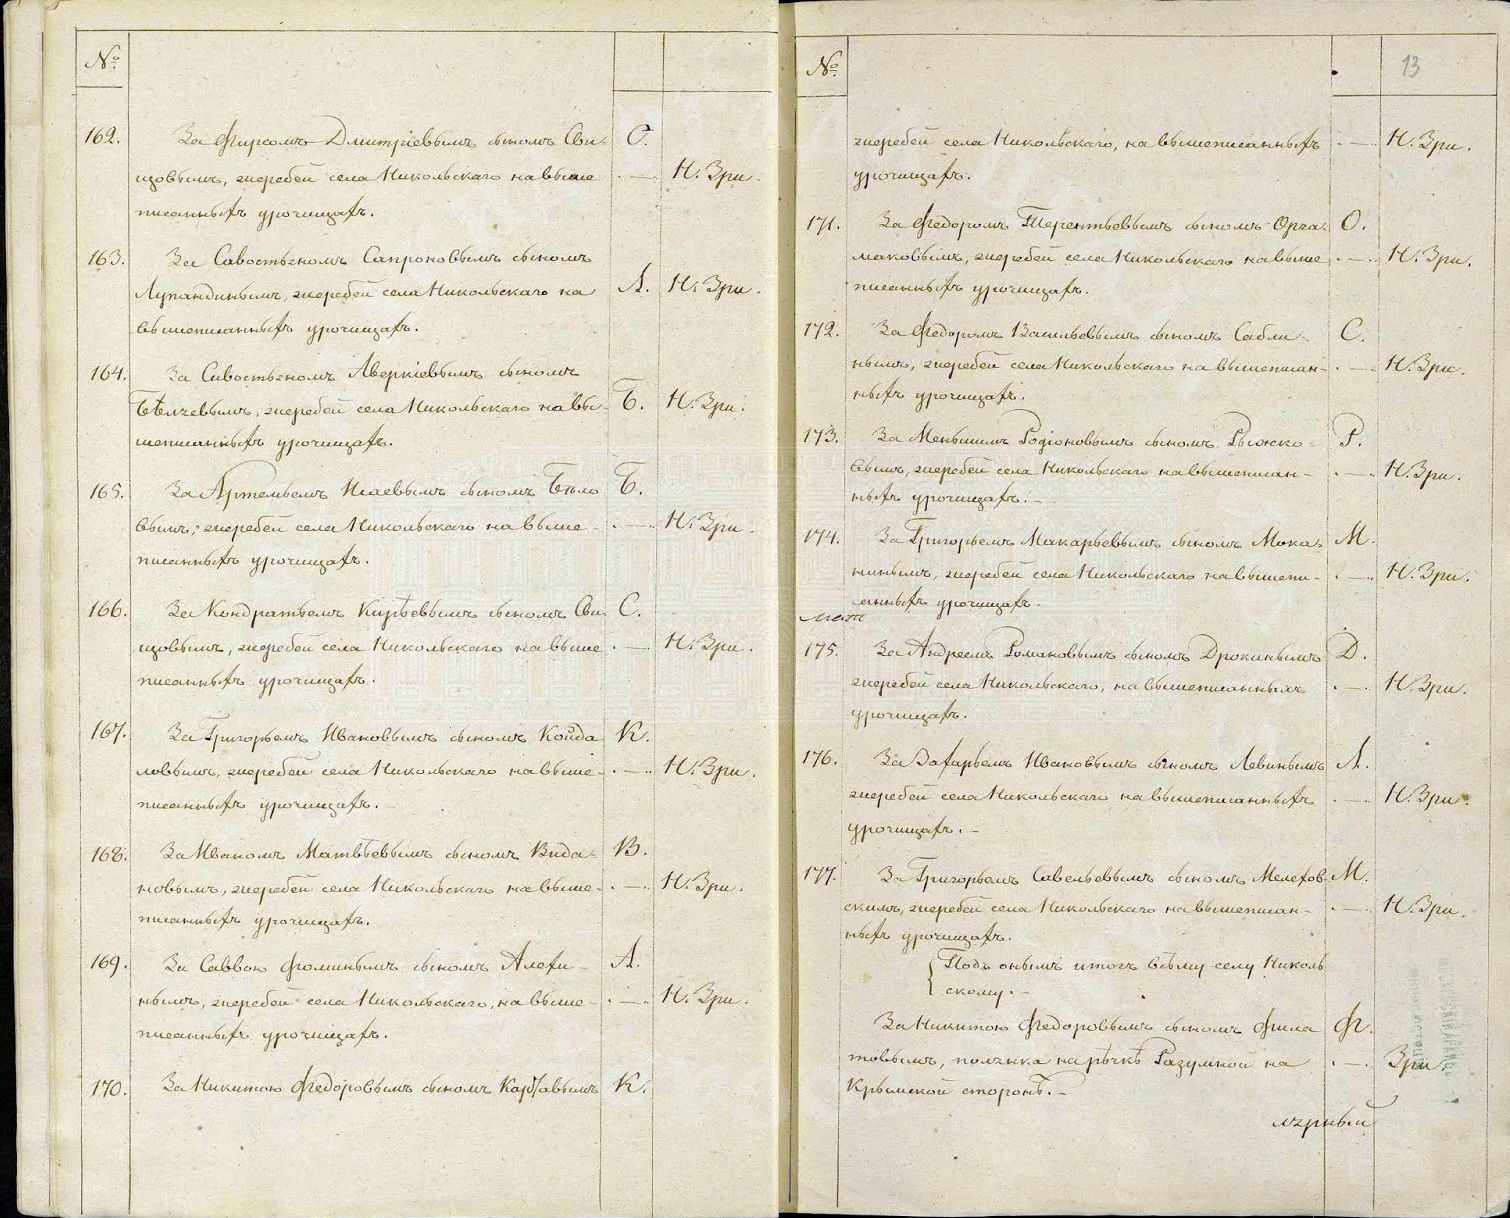 №
162. За Фирсомъ Дмитріевымъ сыномъ Сви- О.
щовымъ, жеребей села Никольскаго на выше . — . Н. Зри.
писанныхъ урочищахъ.
163. За Савостьяномъ Сапроновымъ сыномъ
Лупандинымъ, жеребей села Никольскаго на Л. Н. Зри.
вышеписанныхъ урочищахъ.
164. За Савостьяномъ Аверкіевымъ сыномъ
Бѣлчевымъ, жеребей села Никольскаго на вы- Б. Н. Зри.
шеписанныхъ урочищахъ.
165. За Артемьемъ Исаевымъ сыномъ Бѣло Б.
вымъ, жеребей села Никольскаго на выше- . — . Н. Зри.
писанныхъ урочищахъ.
166. За Кондратьемъ Кирѣевымъ сыномъ Сви С.
щовымъ, жеребей села Никольскаго на выше . — . Н. Зри.
писанныхъ урочищахъ.
167. За Григорьемъ Ивановымъ сыномъ Койда К.
ловымъ, жеребей села Никольскаго на выше- . — . Н. Зри.
писанныхъ урочищахъ. —
168. За Иваномъ Матвѣевымъ сыномъ Вида- В.
новымъ, жеребей села Никольскаго на выше- . — . Н. Зри.
писанныхъ урочищахъ.
169. За Саввою Фоминымъ сыномъ Алехи- А.
нымъ, жеребей села Никольскаго, на выше- . — . Н. Зри.
писанныхъ урочищахъ.
170. За Никитою Федоровымъ сыномъ К.
№ 13
жеребей села Никольскаго, на вышеписанныхъ . — . Н. Зри.
урочищахъ.
171. За Федоромъ Терентьевымъ сыномъ Орга- О.
маковымъ, жеребей села Никольскаго на выше . — . Н. Зри.
писанныхъ урочищахъ.
172. За Федоромъ Васильевымъ сыномъ Сабли- С.
нымъ, жеребей села Никольскаго на вышеписан- . — . Н. Зри.
ныхъ урочищахъ.
173. За Меньшимъ Родіоновымъ сыномъ Рыжко- Р.
вымъ, жеребей села Никольскаго на вышеписан- . — . Н. Зри.
ныхъ урочищахъ. —
174. За Григорьемъ Макарьевымъ сыномъ Мока- М.
нинымъ, жеребей села Никольскаго на вышепи- . — . Н. Зри.
санныхъ урочищахъ.
175. За Андреемъ Романовымъ сыномъ Дрокинымъ Д.
жеребей села Никольскаго, на вышеписанныхъ . — . Н. Зри.
урочищахъ.
176. За Захарьемъ Ивановымъ сыномъ Левинымъ Л.
жеребей села Никольскаго на вышеписанныхъ . — . Н. Зри.
урочищахъ. —
177. За Григорьемъ Савельевымъ сыномъ Мелехов М.
скимъ, жеребей села Никольскаго на вышеписан- . — . Н. Зри.
ныхъ урочищахъ.
Подъ онымъ итогъ всѣму селу Николь
скому. —
За Никитою Федоровымъ сыномъ Фила Ф.
товымъ, полянка на рѣчкѣ Разумной на . — . Зри.
Крымской сторонѣ. —